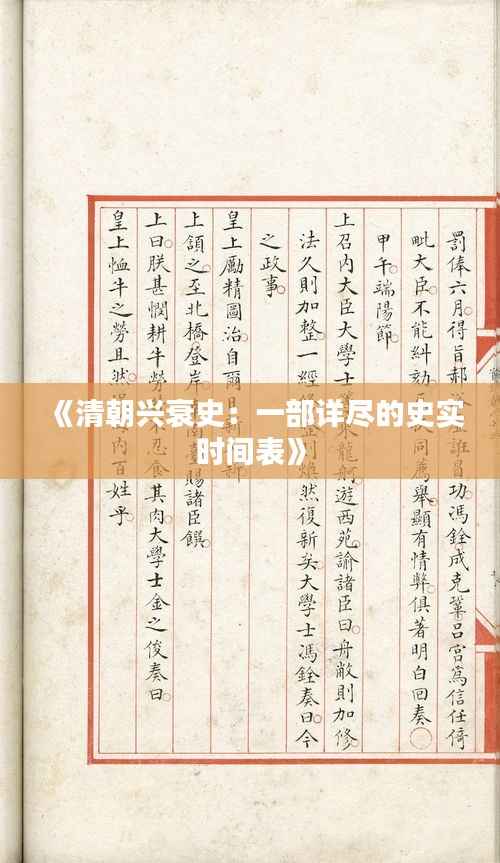 罰俸六月得旨郝冒功馮銓成克鞏呂宮為信任倚
毗大臣不能糾劾同薦舉顯有情弊俱著明白回奏○
甲午端陽節
上召内大臣大學士乘龍舸遊西苑諭諸臣曰舟敝則加修
法久則加整一經雖然復新矣大學士馮銓奏曰今
之政事
皇上勵精圖治自爾日
上頷之至北橋登岸南臺賜諸臣饌
上曰朕甚憫耕牛勞忍食其肉大學士金之俊奏曰
皇上恤牛之勞且然内百姓乎
《清朝兴衰史：一部详尽的史实
时间表》